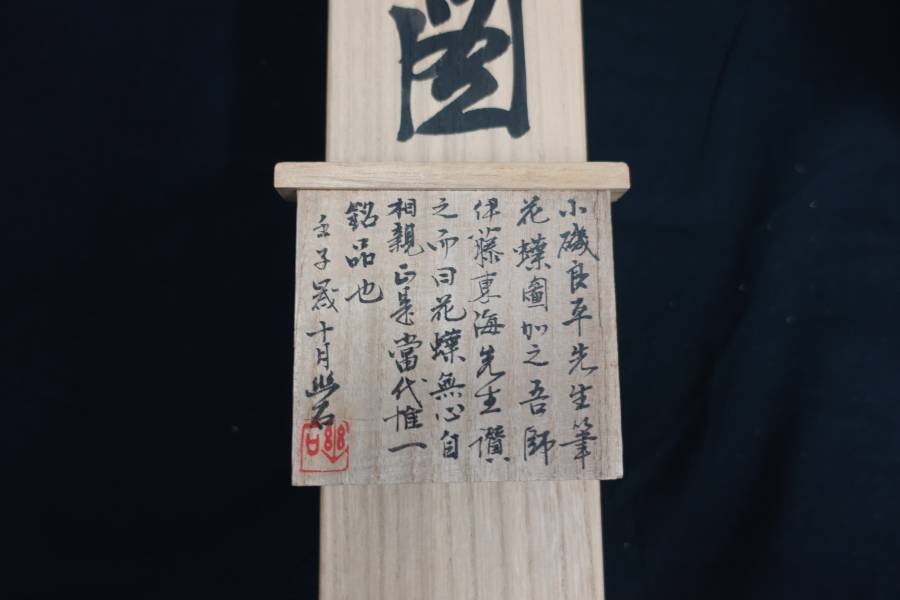 図
小磯良平先生筆
花蝶圖加之吾師
伊藤東海先生讃
之而曰花蝶無心自
相親正是當代惟一
銘品也
壬子歲十月幽石